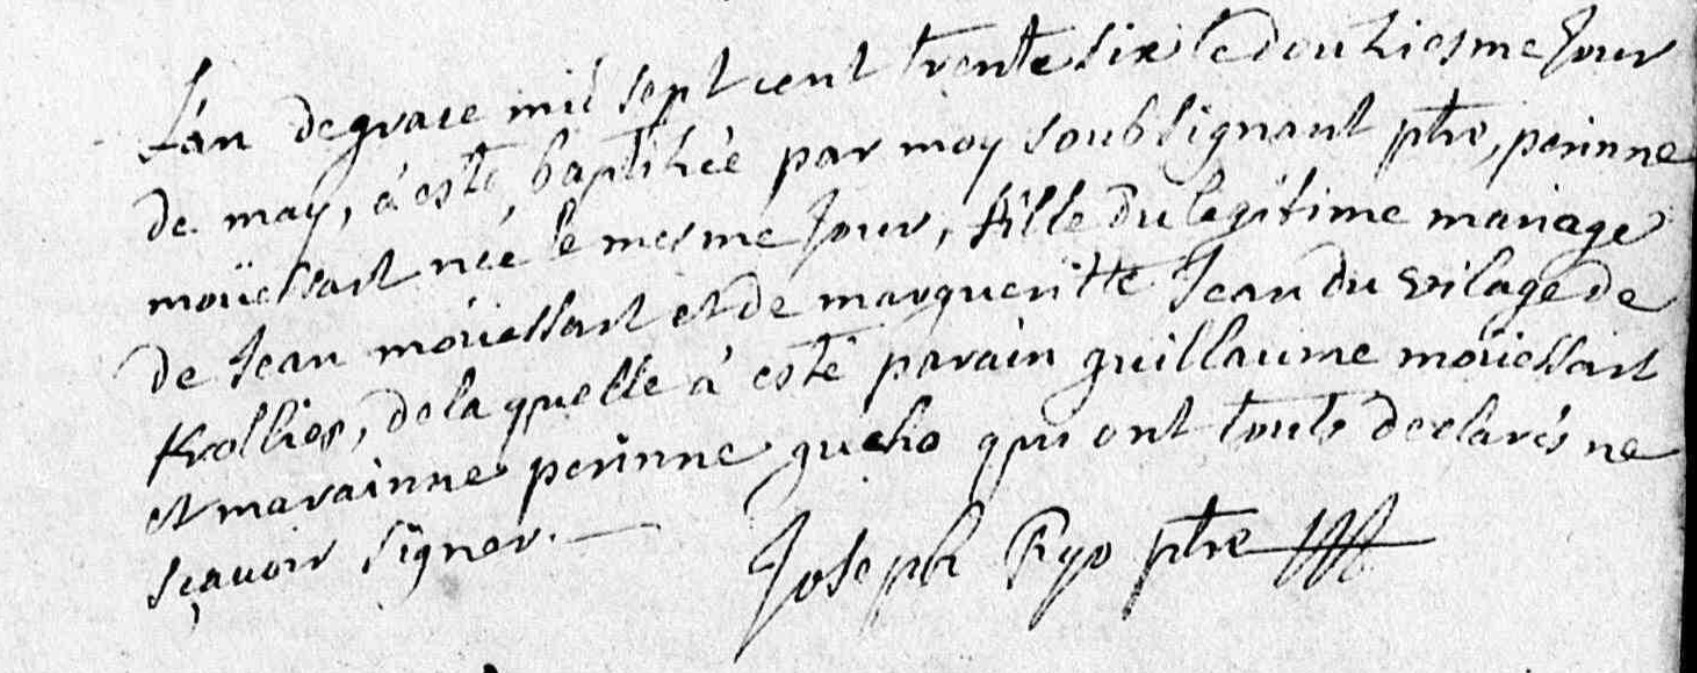 L'an de grace mil sept cent trente six le douziesme jour
de may, à esté baptizée par moy soubsignant ptre, perinne
moüessart née le mesme jour, fille du legitime mariage
de Jean moüessart et de margueritte Jean du vilage de
de la quelle à esté parain guillaume moüessart
et marainne perinne gueho qui ont touts declarés ne
sçavoir signer.
Joseph Ryo ptre